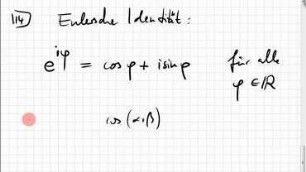 114) Eulersche Identität:
e^{iφ} = cos φ + i sin φ für alle
φ ∈ ℝ
cos (α+β)